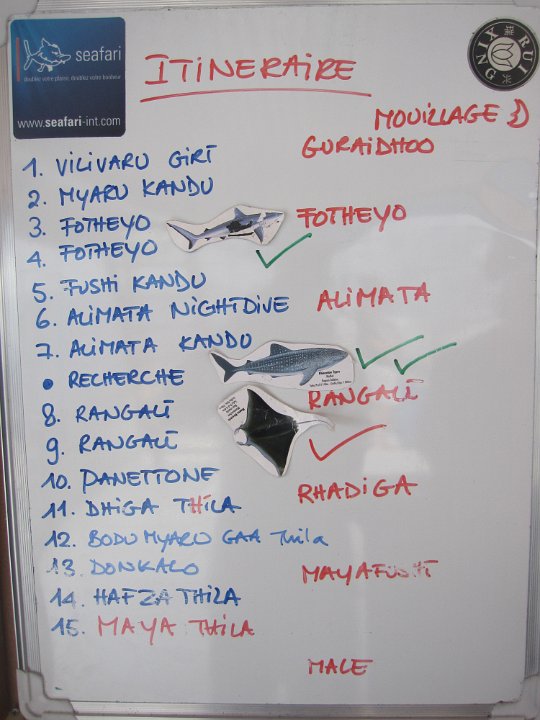 seafari
doublez votre plaisir, doublez votre bonheur
www.seafari-int.com
ITINERAIRE
XING RUI
MOUILLAGE
GURAIDHOO
1. VILIVARU GIRI
2. MYARU KANDU
3. FOTHEYO
FOTHEYO
4. FOTHEYO
5. FUSHI KANDU
6. ALIMATA NIGHTDIVE
ALIMATA
7. ALIMATA KANDU
• RECHERCHE
RANGALI
8. RANGALI
9. RANGALI
10. PANETTONE
RHADIGA
11. DHIGA THILA
12. BODU MYARU GAA Thila
13. DONKALO
MAYAFUSHI
14. HAFZA THILA
15. MAYA THILA
MALE